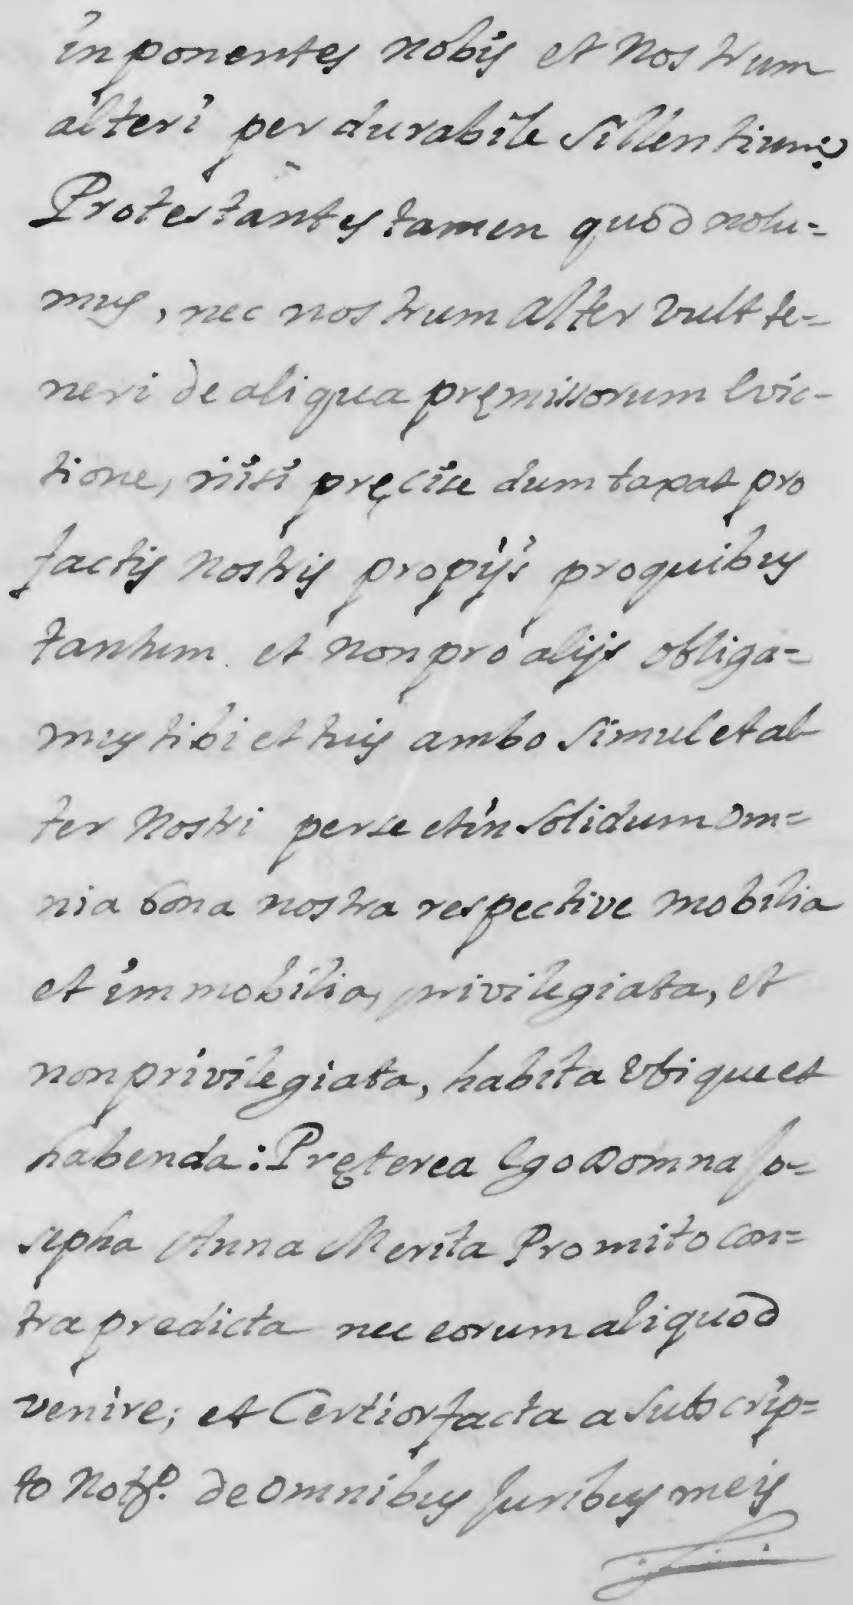 inponentes nobis et nostrum
alteri perdurabile sillentium:
Protestantes tamen quod nolu=
mus, nec nostrum alter vult te=
neri de aliqua pręmissorum evic-
tione, nisi pręcise dumtaxat pro
factis nostris propijs pro quibus
tantum et non pro alijs obliga=
mus tibi et tuis ambo simul et al
ter nostri per se et in solidum om=
nia bona nostra respective mobilia
et immobilia, privilegiata, et
non privilegiata, habita ubique et
habenda: Pręterea Ego Domna Jo=
sepha Anna Merita Promito con=
tra predicta nec eorum aliquod
venire; et Certior facta a subscrip=
to Notº. de omnibus Juribus meis